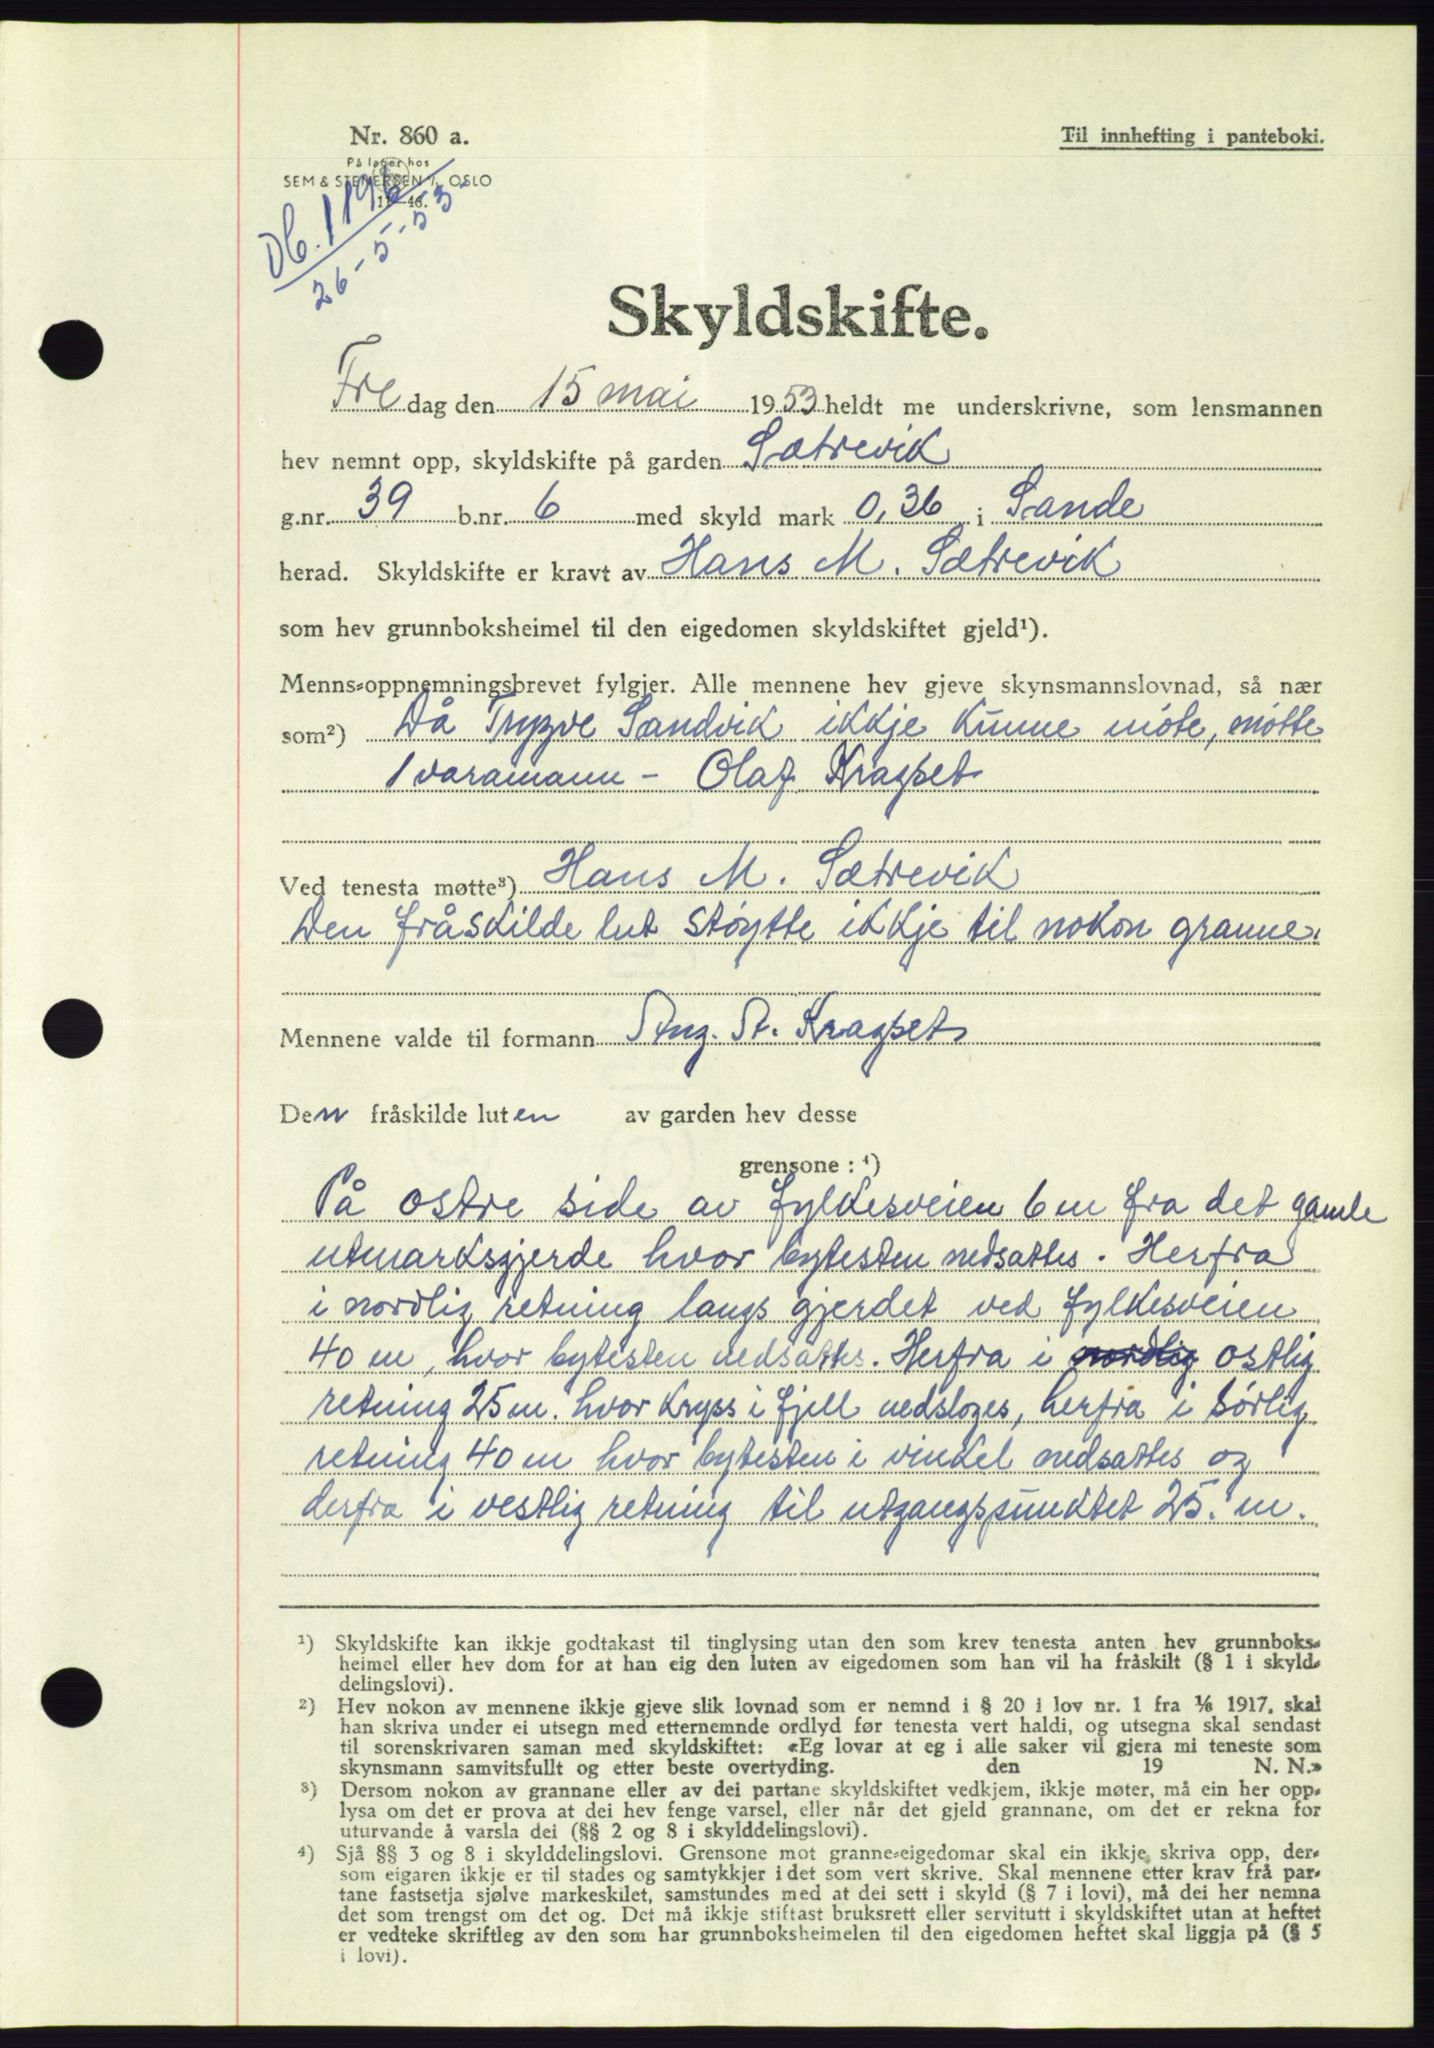 Nr. 860 a.
Til innhefting i panteboki.
På lager hos
SEM & STENERSEN A/S OSLO
11-46.
Db. 1196
26-5-53
Skyldskifte.
Fredag den 15 mai 1953 heldt me underskrivne, som lensmannen
hev nemnt opp, skyldskifte på garden Sætrevik
g.nr. 39 b.nr. 6 med skyld mark 0,36 i Sande
herad. Skyldskifte er kravt av Hans M. Sætrevik
som hev grunnboksheimel til den eigedomen skyldskiftet gjeld¹).
Menns-oppnemningsbrevet fylgjer. Alle mennene hev gjeve skynsmannslovnad, så nær
som²) Då Trygve Sandvik ikkje kunne møte, møtte
1 varamann - Olaf Kragset
Ved tenesta møtte³) Hans M. Sætrevik
Den fråskilde lut støytte ikkje til nokon granne.
Mennene valde til formann Aug. St. Kragset
Den fråskilde luten av garden hev desse
grensone : ⁴)
På østre side av fylkesveien 6 m fra det gamle
utmarksgjerde hvor bytesten nedsattes. Herfra
i nordlig retning langs gjerdet ved fylkesveien
40 m, hvor bytesten nedsattes. Herfra i nordlig ostlig
retning 25 m. hvor kryss i fjell nedsloges, herfra i sørlig
retning 40 m hvor bytesten i vinkel nedsattes og
derfra i vestlig retning til utgangspunktet 25. m.
¹) Skyldskifte kan ikkje godtakast til tinglysing utan den som krev tenesta anten hev grunnboks-
heimel eller hev dom for at han eig den luten av eigedomen som han vil ha fråskilt (§ 1 i skyld-
delingslovi).
²) Hev nokon av mennene ikkje gjeve slik lovnad som er nemnd i § 20 i lov nr. 1 fra 1/6 1917, skal
han skriva under ei utsegn med etternemnde ordlyd før tenesta vert haldi, og utsegna skal sendast
til sorenskrivaren saman med skyldskiftet: «Eg lovar at eg i alle saker vil gjera mi teneste som
skynsmann samvitsfullt og etter beste overtyding. den 19 N. N.»
³) Dersom nokon av grannane eller av dei partane skyldskiftet vedkjem, ikkje møter, må ein her opp-
lysa om det er prova at dei hev fenge varsel, eller når det gjeld grannane, om det er rekna for
uturvande å varsla dei (§§ 2 og 8 i skylddelingslovi).
⁴) Sjå §§ 3 og 8 i skylddelingslovi. Grensone mot granne-eigedomar skal ein ikkje skriva opp, der-
som eigaren ikkje er til stades og samtykkjer i det som vert skrive. Skal mennene etter krav frå par-
tane fastsetja sjølve markeskilet, samstundes med at dei sett i skyld (§ 7 i lovi), må dei her nemna
det som trengst om det og. Det må ikkje stiftast bruksrett eller servitutt i skyldskiftet utan at heftet
er vedteke skriftleg av den som har grunnboksheimelen til den eigedomen heftet skal liggja på (§ 5
i lovi).